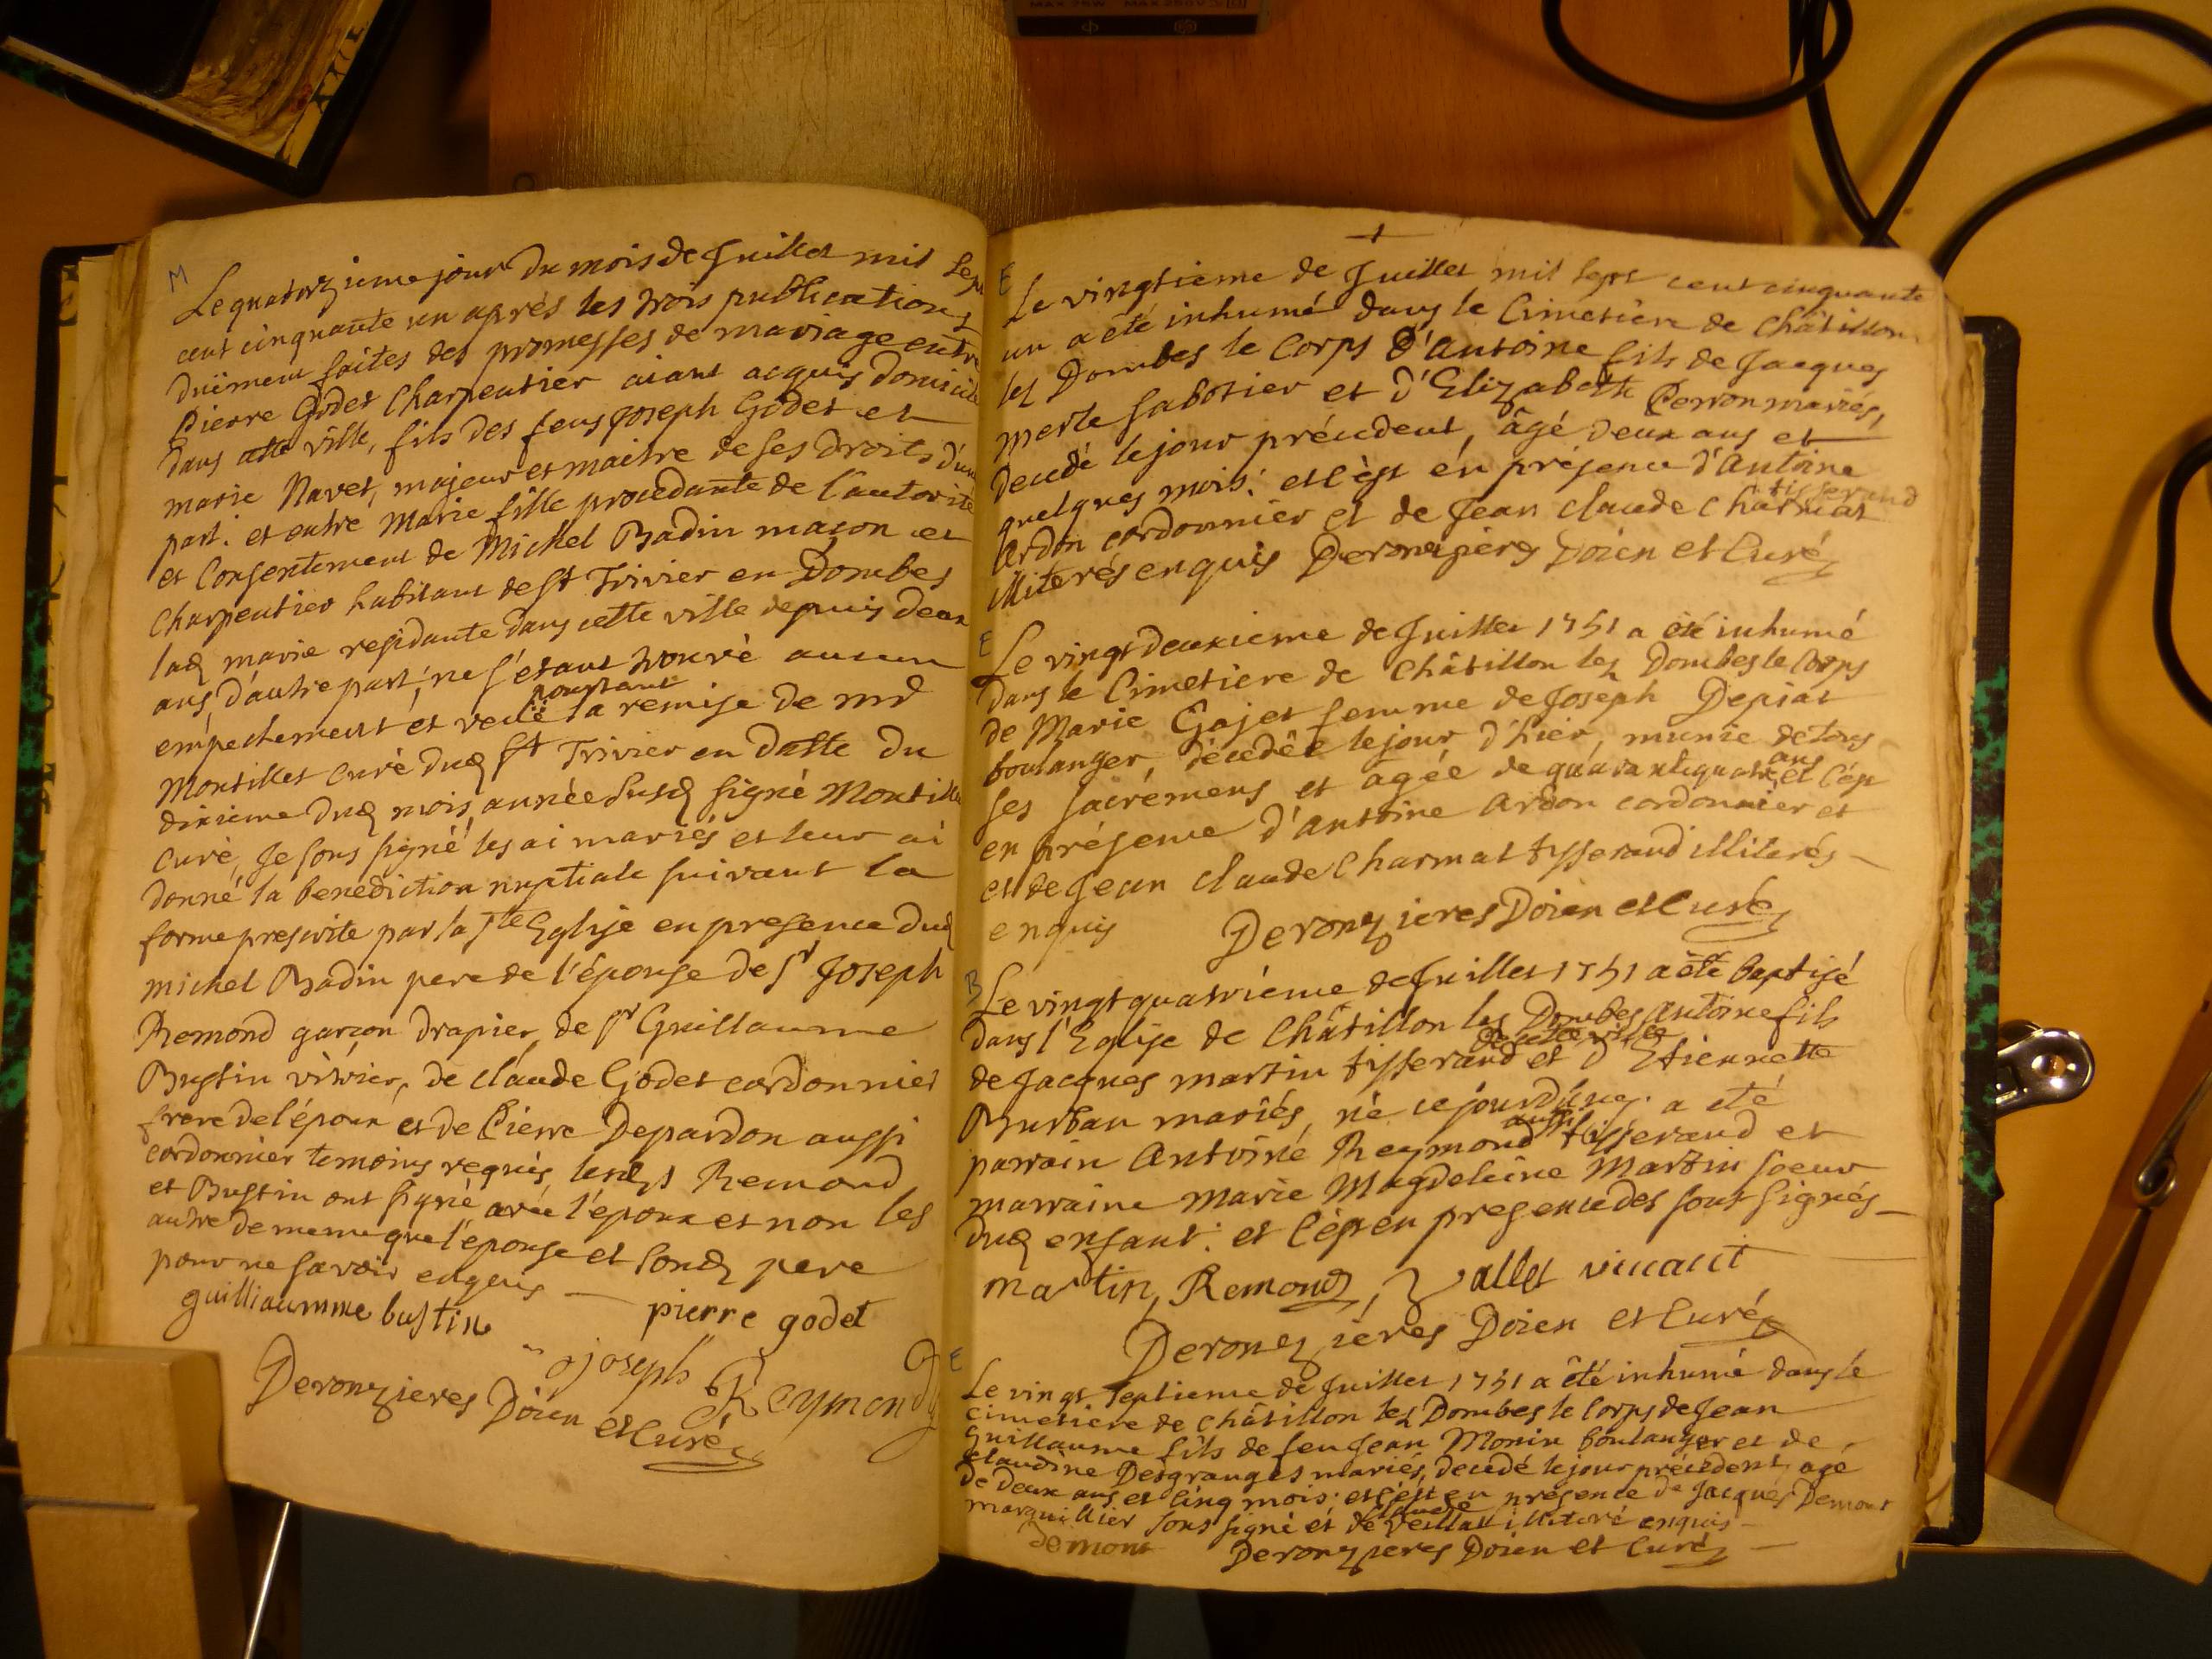 M
Le quatorzieme jour du mois de Juillet mil sept
cent cinquante un aprés les trois publications
duëment faites des promesses de mariage entre
Pierre Godet Charpentier aiant acquis domicile
dans cette ville, fils des feus Joseph Godet et
marie Navet, majeur et maitre de ses Droits d'une
part. et entre Marie fille procedante de l'autorité
et Consentement de Michel Badin maçon et
Charpentier habitant de St Trivier en Dombes
lad marie residante dans cette ville depuis deux
ans d'autre part; ne s'etant trouvé aucun
empechement et veüe pourtant la remise de mr
Montillet Curé dud St Trivier en datte du
dixieme dud mois, année susd signé Montillet
Curé, Je sous signé les ai mariés et leur ai
donné la benediction nuptiale suivant la
forme prescrite par la Ste Eglise en presence dud
michel Badin pere de l'épouse de Sr Joseph
Remond garçon drapier, de Sr Guillaume
Bustin vitrier, de claude Godet cordonnier
frere de l'époux et de Pierre Depardon aussi
cordonnier temoins requis, lesds Remond
et Bustin ont signé avec l'époux et non les
autre de meme que l'épouse et sond pere
pour ne savoir enquis
guilliaumme bustin
pierre godet
joseph Reymond
Deronzieres Doien et Curé
E
Le vingtieme de Juillet mil sept cent cinquante
un a eté inhumé dans le Cimetiere de Châtillon
lez Dombes le Corps d'Antoine fils de Jacques
merle sabotier et d'Elizabeth Perron mariés,
decedé le jour précedent, âgé deux ans et
quelques mois. et c'est en présence d'Antoine
Ardon cordonnier et de Jean claude Charmat tisserand
illiterés enquis Deronzieres Doien et Curé
E
Le vingt deuxieme de Juillet 1751 a été inhumé
dans le Cimetiere de Châtillon lez Dombes le Corps
de Marie Gajet femme de Joseph Depiat
boulanger, decedée le jour d'hier, munie de tous
ses sacrémens et agée de quarante quatre ans et c'est
en présence d'Antoine Ardon cordonnier et
et de Jean claude Charmat tysserand illiterés
enquis Deronzieres Doien et Curé
B
Le vingt quatriéme de Juillet 1751 a été baptisé
dans l'Eglise de Châtillon les Dombes Antoine fils
de Jacques martin tysserand de cette ville et d'Etiennette
Burban mariés, né ce jourd'huy. a eté
parrain Antoine Reymond aussi tisserand et
marraine Marie Magdeleine Martin soeur
dud enfant. et c'est en presence des sout signés
martin, Remond, vallet vincent
Deronzieres Doien et Curé
E
Le vingt septieme de Juillet 1751 a été inhumé dans le
cimetiere de Châtillon lez Dombes le Corps de Jean
Guillaume fils de feu Jean Monin boulanger et de
Claudine Desgranges mariés, decedé le jour précedent, agé
de deux ans et cinq mois; et c'est en présence de Jacques Demont
marguillier sous signé et de claude illiteré enquis
Demont Deronzieres Doien et Curé